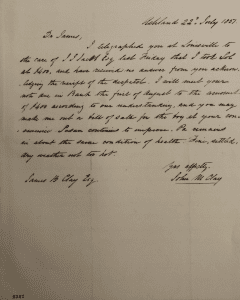 Ashland 22d July 1857
Dr James,
I telegraphed you at Louisville to
the care of J S Esq last Friday that I took Lot
at $400, and have received no answer from you acknow
ledging the receipt of the despatch. I will meet your
note due in Bank the first of August to the amount
of $400 according to our understanding, and you may
make me out a bill of sale for the boy at your con-
venience Susan continues to improve. Pa remains
in about the same condition of health. Fine, settled,
dry weather not too hot.
Yrs affectly.
John M Clay
James B Clay Esq